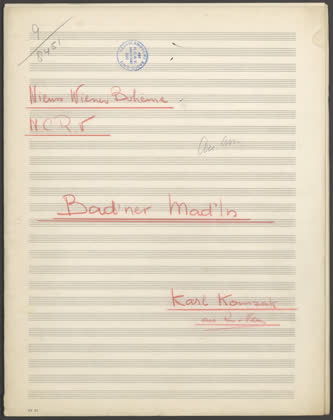 9
8451
Nieuw Wiener Bohème
N.C.R.V
Bad'ner Mad'ln
Karl Komzak